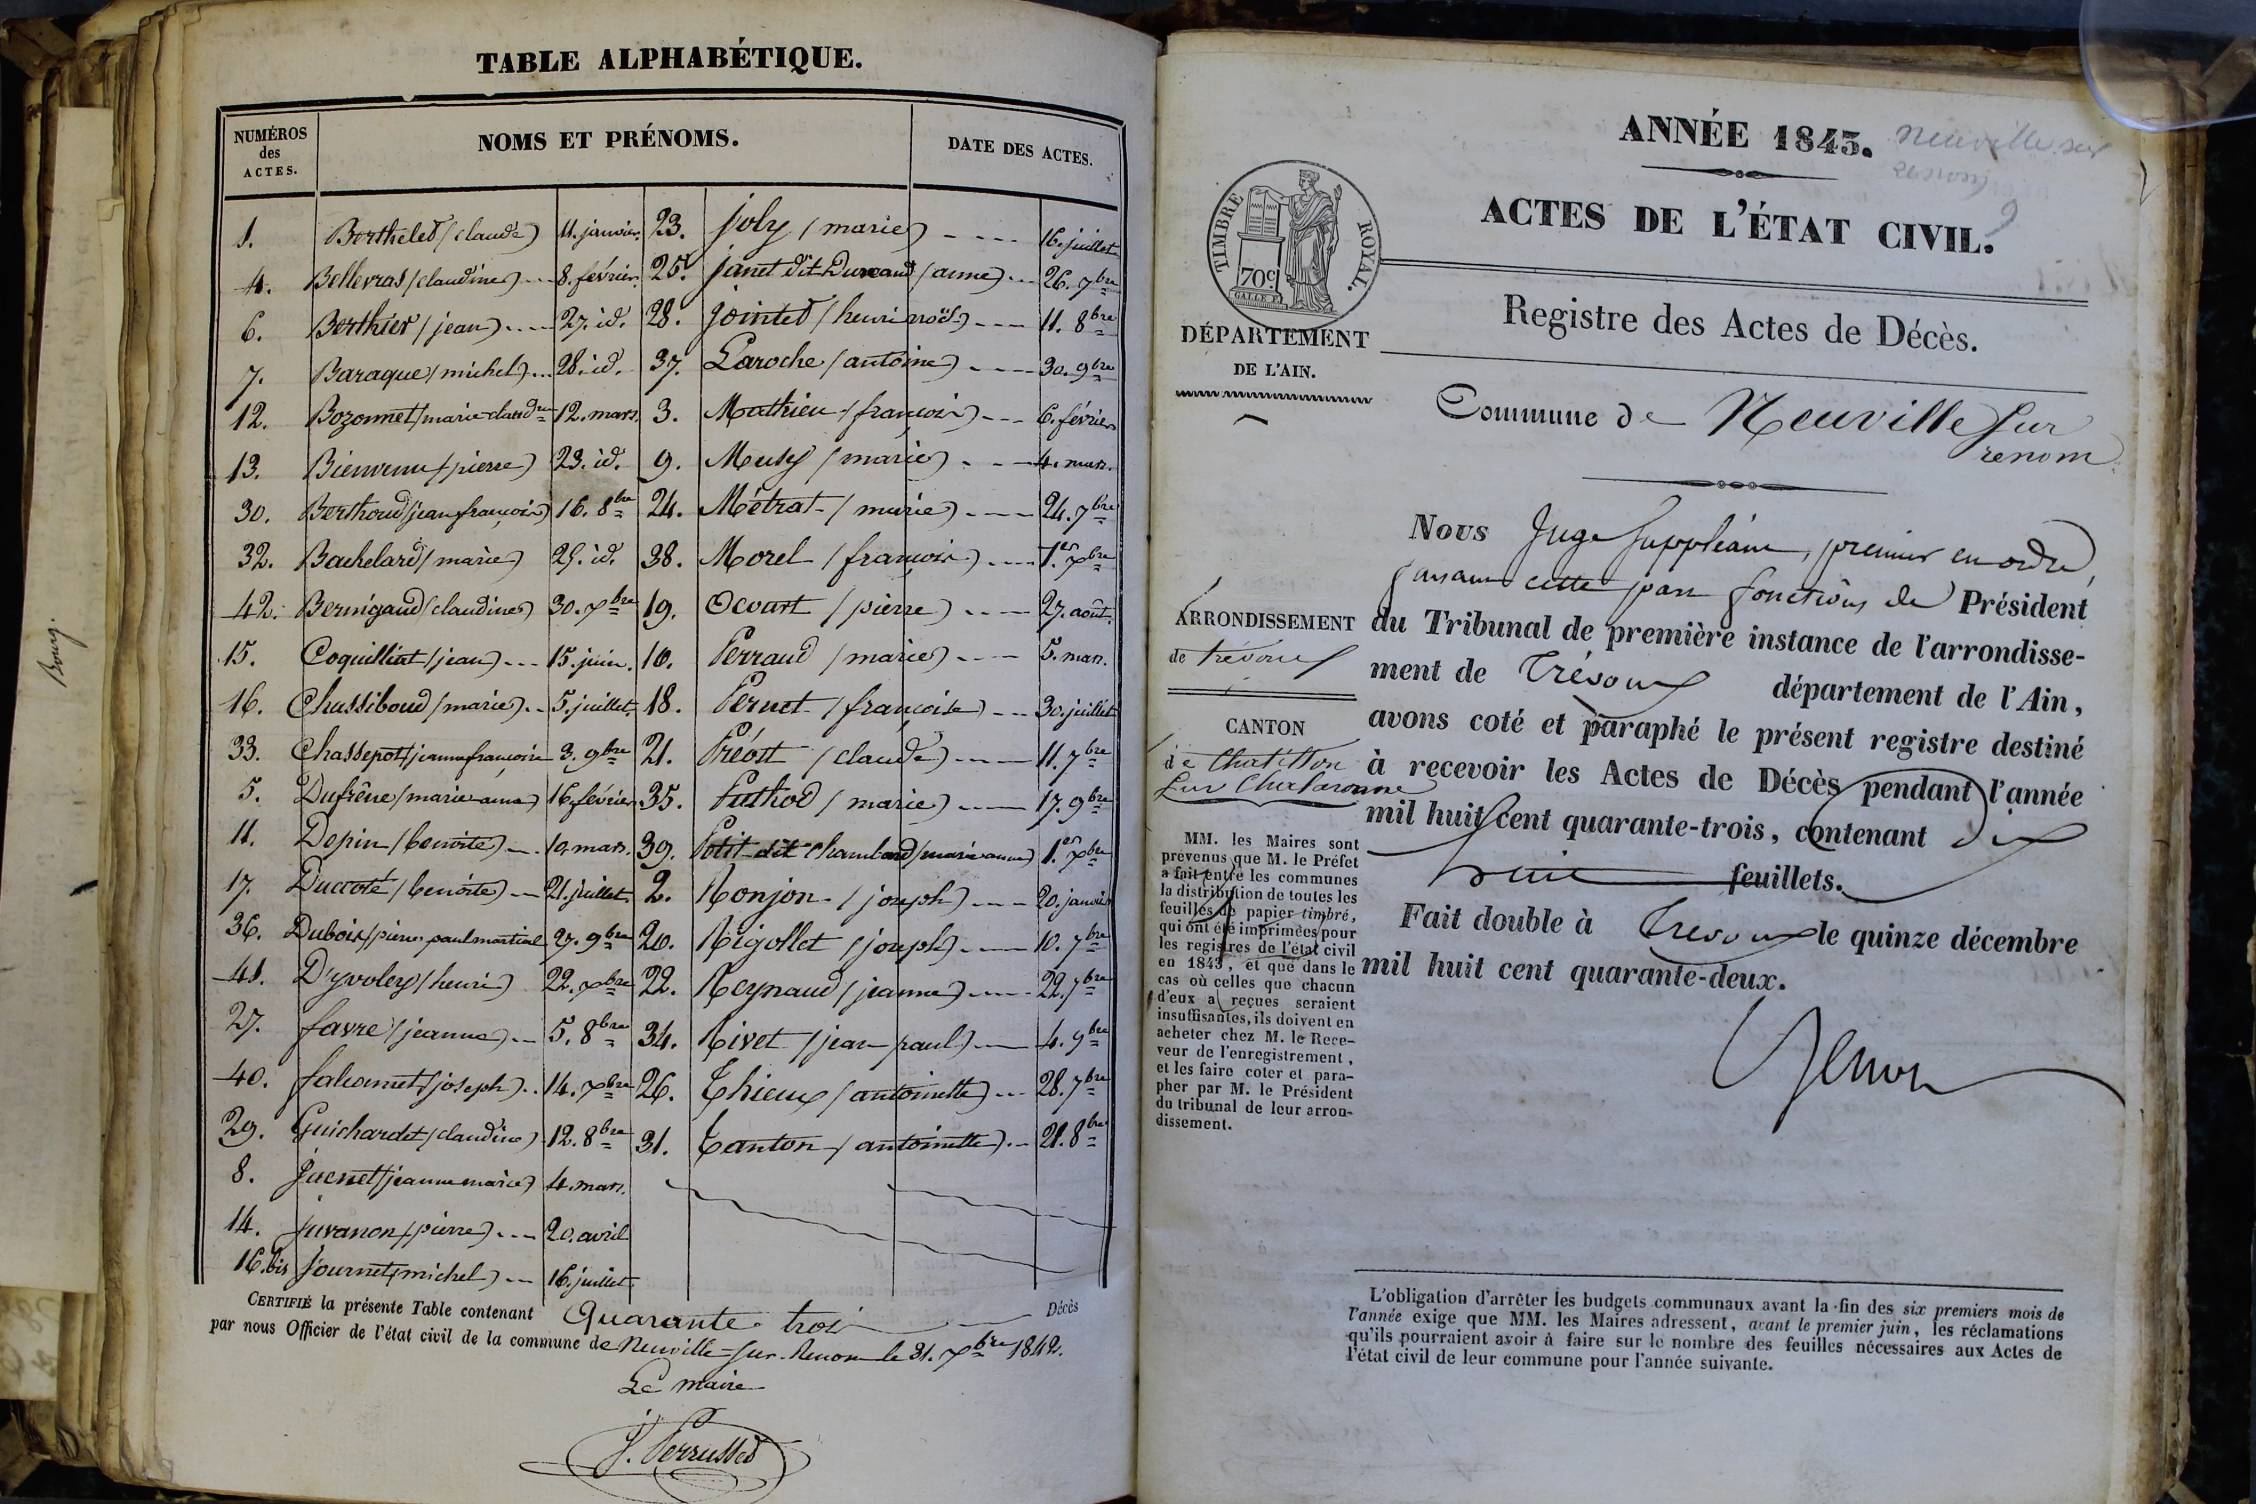 TABLE ALPHABÉTIQUE.
NUMÉROS des ACTES.
NOMS ET PRÉNOMS.
DATE DES ACTES.
1. Berthelet (claude) 11. janvier.
4. Bellevras (claudine) --- 8. février.
6. Berthier (jean) ---- 27. id.
7. Baraque (michel) --- 28. id.
12. Bozonnet (marie claudne) 12. mars.
13. Bienvenu (pierre) 23. id.
30. Berthoud (jean françois) 16. 8bre
32. Bachelard (marie) 25. id.
42. Bernigaud (claudine) 30. xbre
15. Coquilliat (jean) --- 15. juin.
16. Chassiboud (marie) -- 5. juillet.
33. Chassepot (jeanne françoise 3. 9bre
5. Dufrêne (marie anne) 16. février
11. Depin (benoite) --- 10. mars.
17. Ducroté (benoite) -- 21. juillet
36. Dubois (pierre paul martial 27. 9bre
41. D'yvoley (henri) 22. xbre
27. favre (jeanne) -- 5. 8bre
40. falconnet (joseph) .. 14. xbre
29. Guichardet (claudine) 12. 8bre
8. Jacnet (jeanne marie) 4. mars.
14. juvanon (pierre) --- 20. avril
16. bis Journet (michel) -- 16. juillet
23. joly (marie) ---- 16. juillet
25. janet dit Durand (anne) --- 26. 7bre
28. Jointet (henri noël) ---- 11. 8bre
37. Laroche (antoine) ---- 30. 9bre
3. Mathieu (françois) --- 6. février
9. Musy (marie) --- 4. mars.
24. Métrat (marie) ---- 24. 7bre
38. Morel (françois) ---- 1.er xbre
19. Ocvart (pierre) ---- 27. août.
10. Perraud (marie) ---- 5. mars.
18. Pernet (françoise) --- 30. juillet
21. Préost (claude) ---- 11. 7bre
35. Puthod (marie) ---- 17. 9bre
39. Petit dit Chambard (marie anne) 1.er xbre
2. Ronjon (joseph) ---- 20. janvier
20. Rigollet (joseph) ---- 10. 7bre
22. Reynaud (jeanne) ---- 22. 7bre
34. Rivet (jean paul) --- 4. 9bre
26. Thieux (antoinette) --- 28. 7bre
31. Tanton (antoinette) -- 21. 8bre
CERTIFIÉ la présente Table contenant Quarante trois Décès
par nous Officier de l'état civil de la commune de Neuville-sur-Renom le 31. xbre 1842.
Le maire
J. Perrusset
Bourg.
ANNÉE 1843. Neuville sur
renom
9
ACTES DE L'ÉTAT CIVIL.
TIMBRE ROYAL.
70c
GALLE F.
Registre des Actes de Décès.
DÉPARTEMENT
DE L'AIN.
Commune de Neuville sur
renom
ARRONDISSEMENT
de trévoux
CANTON
de Chatillon
sur Chalaronne
MM. les Maires sont
prévenus que M. le Préfet
a fait entre les communes
la distribution de toutes les
feuilles de papier timbré,
qui ont été imprimées pour
les registres de l'état civil
en 1843, et que dans le
cas où celles que chacun
d'eux a reçues seraient
insuffisantes, ils doivent en
acheter chez M. le Rece-
veur de l'enregistrement,
et les faire coter et para-
pher par M. le Président
du tribunal de leur arron-
dissement.
Nous Juge suppléant, premier en ordre,
faisant cette part fonctions de Président
du Tribunal de première instance de l'arrondisse-
ment de Trévoux département de l'Ain,
avons coté et paraphé le présent registre destiné
à recevoir les Actes de Décès pendant l'année
mil huit cent quarante-trois, contenant dix
huit feuillets.
Fait double à Trevoux le quinze décembre
mil huit cent quarante-deux.
L'obligation d'arrêter les budgets communaux avant la fin des six premiers mois de
l'année exige que MM. les Maires adressent, avant le premier juin, les réclamations
qu'ils pourraient avoir à faire sur le nombre des feuilles nécessaires aux Actes de
l'état civil de leur commune pour l'année suivante.